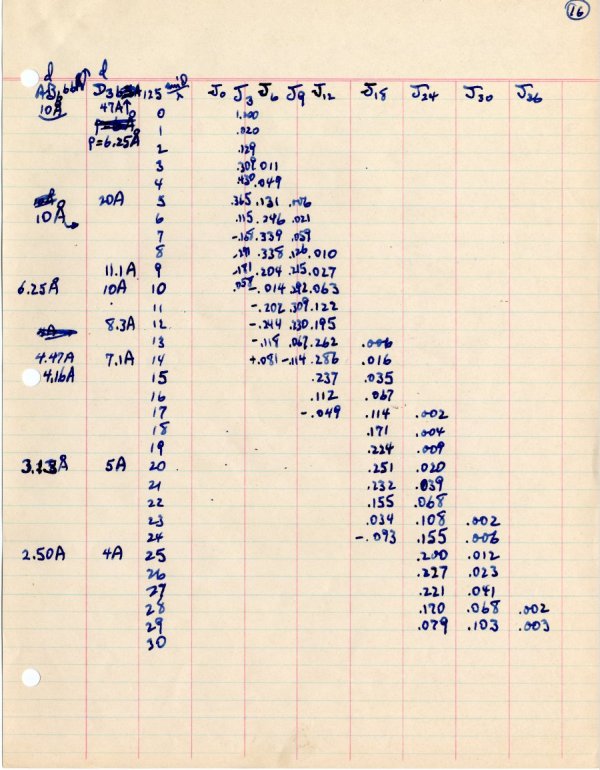 16
d d
10Å 47A↑ 0 1.00
1 .020
ρ=6.25Å 2 .129
3 .309 .011
4 .430 .049
20A 5 .365 .131 .006
10Å 6 .115 .246 .021
7 .339 .059
8 .338 .126 .010
11.1A 9 .204 .215 .027
6.25Å 10A 10 .058 -.014 .292 .063
11 -.202 .309 .122
8.3A 12 -.244 .230 .195
13 -.118 .067 .262 .006
4.47A 7.1A 14 +.081 -.114 .286 .016
4.16A 15 .237 .035
16 .112 .067
17 -.049 .114 .002
18 .171 .004
19 .224 .009
5A 20 .251 .020
21 .232 .039
22 .155 .068
23 .034 .108 .002
24 -.093 .155 .006
2.50A 4A 25 .200 .012
26 .227 .023
27 .221 .041
28 .170 .068 .002
29 .079 .103 .003
30